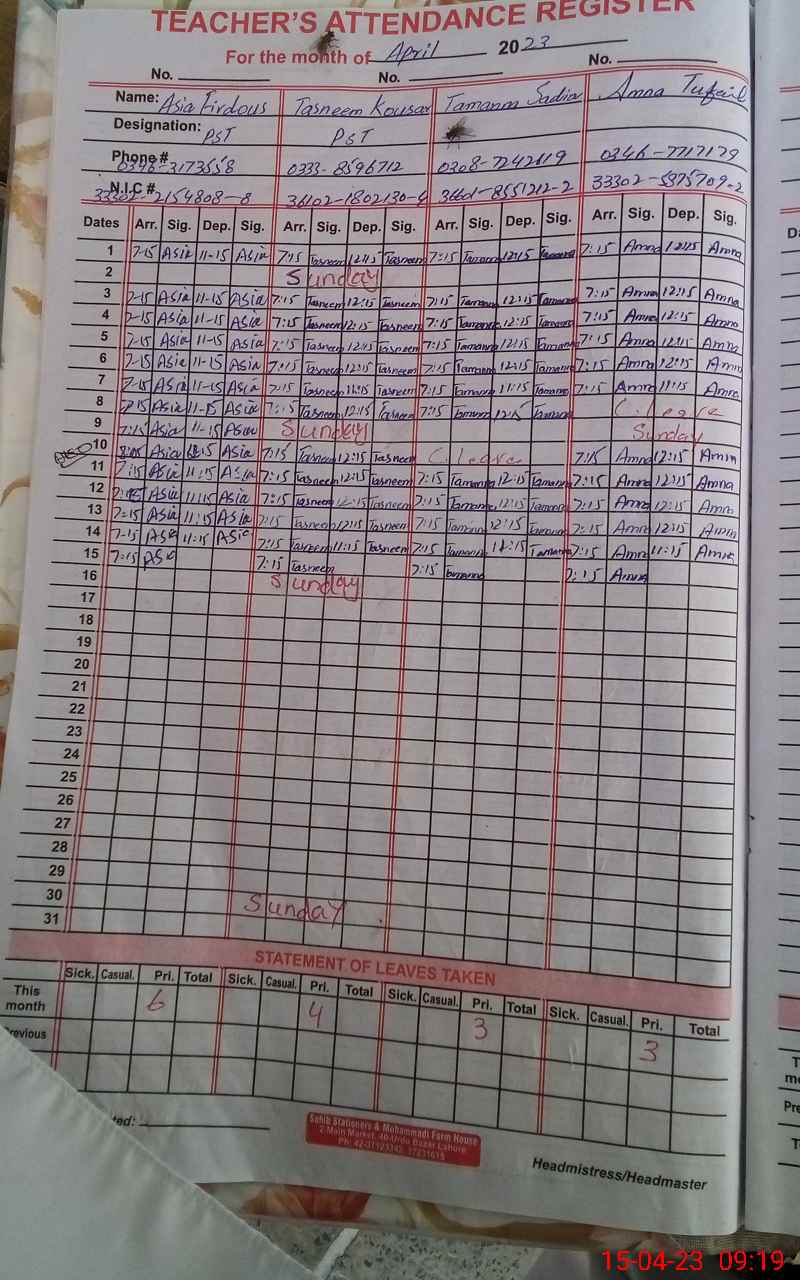 TEACHER'S ATTENDANCE REGISTER
For the month of April 2023
No. No. No.
Name: Asia Firdous Tasneem Kousar Tamanna Sadia Amna Tufail
Designation: PST PST
Phone # 0346-3173558 0333-8596712 0308-7242119 0346-7717179
N.I.C # 33302-2154808-8 36102-1802130- 36601-8551212-2 33302-5975709-2
Dates Arr. Sig. Dep. Sig. Arr. Sig. Dep. Sig. Arr. Sig. Dep. Sig. Arr. Sig. Dep. Sig.
1 7-15 Asia 11-15 Asia 7:15 Tasneem 12:15 Tasneem 7:15 Tamanna 12:15 Tamanna 7:15 Amna 12:15 Amna
2 Sunday
3 7-15 Asia 11-15 Asia 7:15 Tasneem 12:15 Tasneem 7:15 Tamanna 12:15 Tamanna 7:15 Amna 12:15 Amna
4 7-15 Asia 11-15 Asia 7:15 Tasneem 12:15 Tasneem 7:15 Tamanna 12:15 Tamanna 7:15 Amna 12:15 Amna
5 7-15 Asia 11-15 Asia 7:15 Tasneem 12:15 Tasneem 7:15 Tamanna 12:15 Tamanna 7:15 Amna 12:15 Amna
6 7-15 Asia 11-15 Asia 7:15 Tasneem 12:15 Tasneem 7:15 Tamanna 12:15 Tamanna 7:15 Amna 12:15 Amna
7 7-15 Asia 11-15 Asia 7:15 Tasneem 11:15 Tasneem 7:15 Tamanna 11:15 Tamanna 7:15 Amna 11:15 Amna
8 7:15 Asia 11-15 Asia 7:15 Tasneem 12:15 Tasneem 7:15 Tamanna 12:15 Tamanna C.leave
9 7:15 Asia 11-15 Asia Sunday Sunday
10 Asia Asia 7:15 Tasneem 12:15 Tasneem C.leave 7:15 Amna 12:15 Amna
11 7:15 Asia 11:15 Asia 7:15 Tasneem 12:15 Tasneem 7:15 Tamanna 12:15 Tamanna 7:15 Amna 12:15 Amna
12 7:15 Asia 11:15 Asia 7:15 Tasneem 12:15 Tasneem 7:15 Tamanna 12:15 Tamanna 7:15 Amna 12:15 Amna
13 7:15 Asia 11:15 Asia 7:15 Tasneem 12:15 Tasneem 7:15 Tamanna 12:15 Tamanna 7:15 Amna 12:15 Amna
14 7-15 Asia 11:15 Asia 7:15 Tasneem 11:15 Tasneem 7:15 Tamanna 11:15 Tamanna 7:15 Amna 11:15 Amna
15 7:15 Asia 7:15 Tasneem 7:15 Tamanna 7:15 Amna
16 Sunday
17
18
19
20
21
22
23
24
25
26
27
28
29
30 Sunday
31
STATEMENT OF LEAVES TAKEN
Sick. Casual. Pri. Total Sick. Casual. Pri. Total Sick. Casual. Pri. Total Sick. Casual. Pri. Total
This month 6 4 3 3
Previous
Sahib Stationers & Mohammadi Farm House
2-Main Market, 40-Urdu Bazar Lahore
Headmistress/Headmaster
15-04-23 09:19